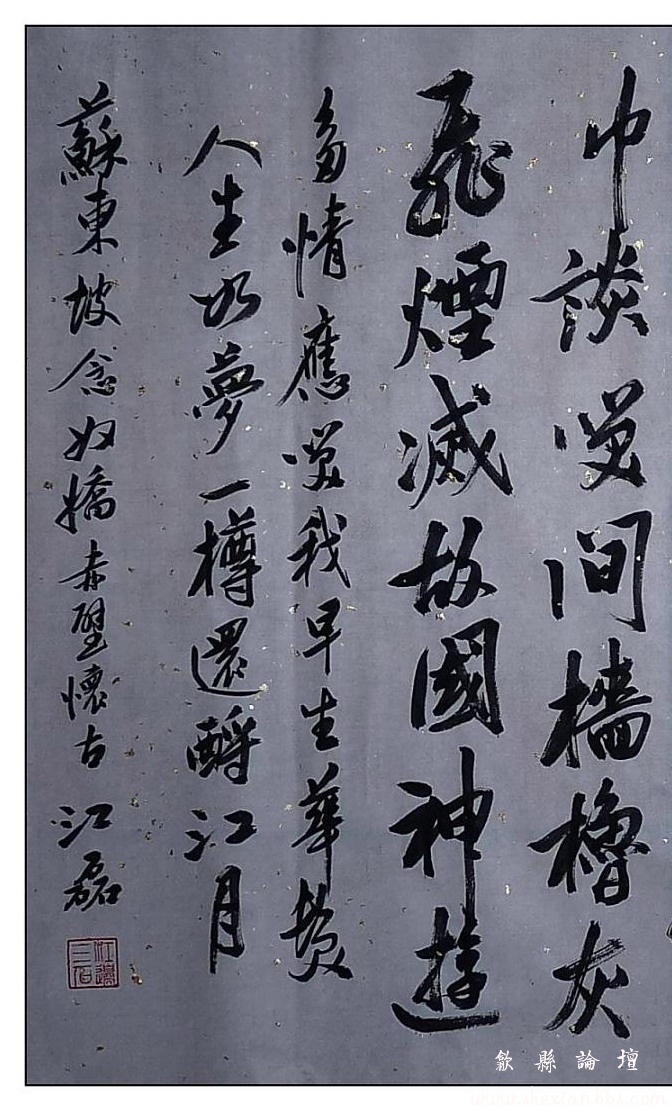 巾談笑間檣櫓灰
飛煙滅故國神遊
多情應笑我早生華髮
人生如夢一樽還酹江月
蘇東坡念奴嬌赤壁懷古 江磊
江邊三石
歙縣論壇